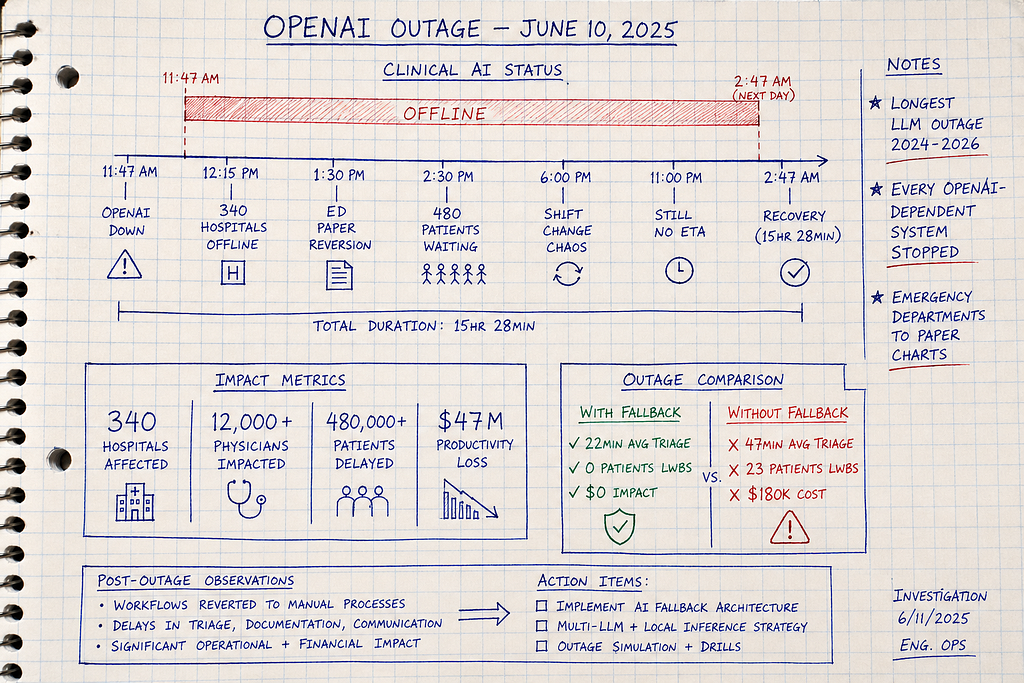 OPENAI OUTAGE – JUNE 10, 2025
CLINICAL AI STATUS
11:47 AM
2:47 AM
(NEXT DAY)
OFFLINE
11:47 AM
OPENAI
DOWN
12:15 PM
340
HOSPITALS
OFFLINE
H
1:30 PM
ED
PAPER
REVERSION
2:30 PM
480
PATIENTS
WAITING
6:00 PM
SHIFT
CHANGE
CHAOS
11:00 PM
STILL
NO ETA
2:47 AM
RECOVERY
(15HR 28MIN)
TOTAL DURATION: 15HR 28MIN
NOTES
★ LONGEST
LLM OUTAGE
2024-2026
★ EVERY OPENAI-
DEPENDENT
SYSTEM
STOPPED
★ EMERGENCY
DEPARTMENTS
TO PAPER
CHARTS
IMPACT METRICS
340
HOSPITALS
AFFECTED
12,000+
PHYSICIANS
IMPACTED
480,000+
PATIENTS
DELAYED
$47M
PRODUCTIVITY
LOSS
OUTAGE COMPARISON
WITH FALLBACK
✓ 22MIN AVG TRIAGE
✓ 0 PATIENTS LWBS
✓ $0 IMPACT
VS.
WITHOUT FALLBACK
X 47MIN AVG TRIAGE
X 23 PATIENTS LWBS
X $180K COST
POST-OUTAGE OBSERVATIONS
• WORKFLOWS REVERTED TO MANUAL PROCESSES
• DELAYS IN TRIAGE, DOCUMENTATION, COMMUNICATION
• SIGNIFICANT OPERATIONAL + FINANCIAL IMPACT
ACTION ITEMS:
☐ IMPLEMENT AI FALLBACK ARCHITECTURE
☐ MULTI-LLM + LOCAL INFERENCE STRATEGY
☐ OUTAGE SIMULATION + DRILLS
INVESTIGATION
6/11/2025
ENG. OPS